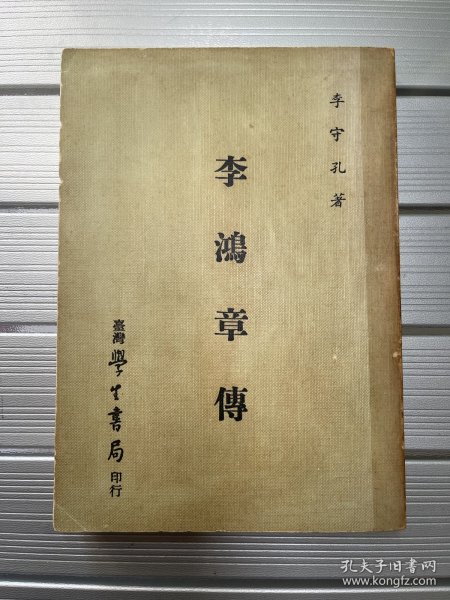 李守孔著
李鴻章傳
臺灣學生書局印行
孔夫子旧书网
www.kongfz.com